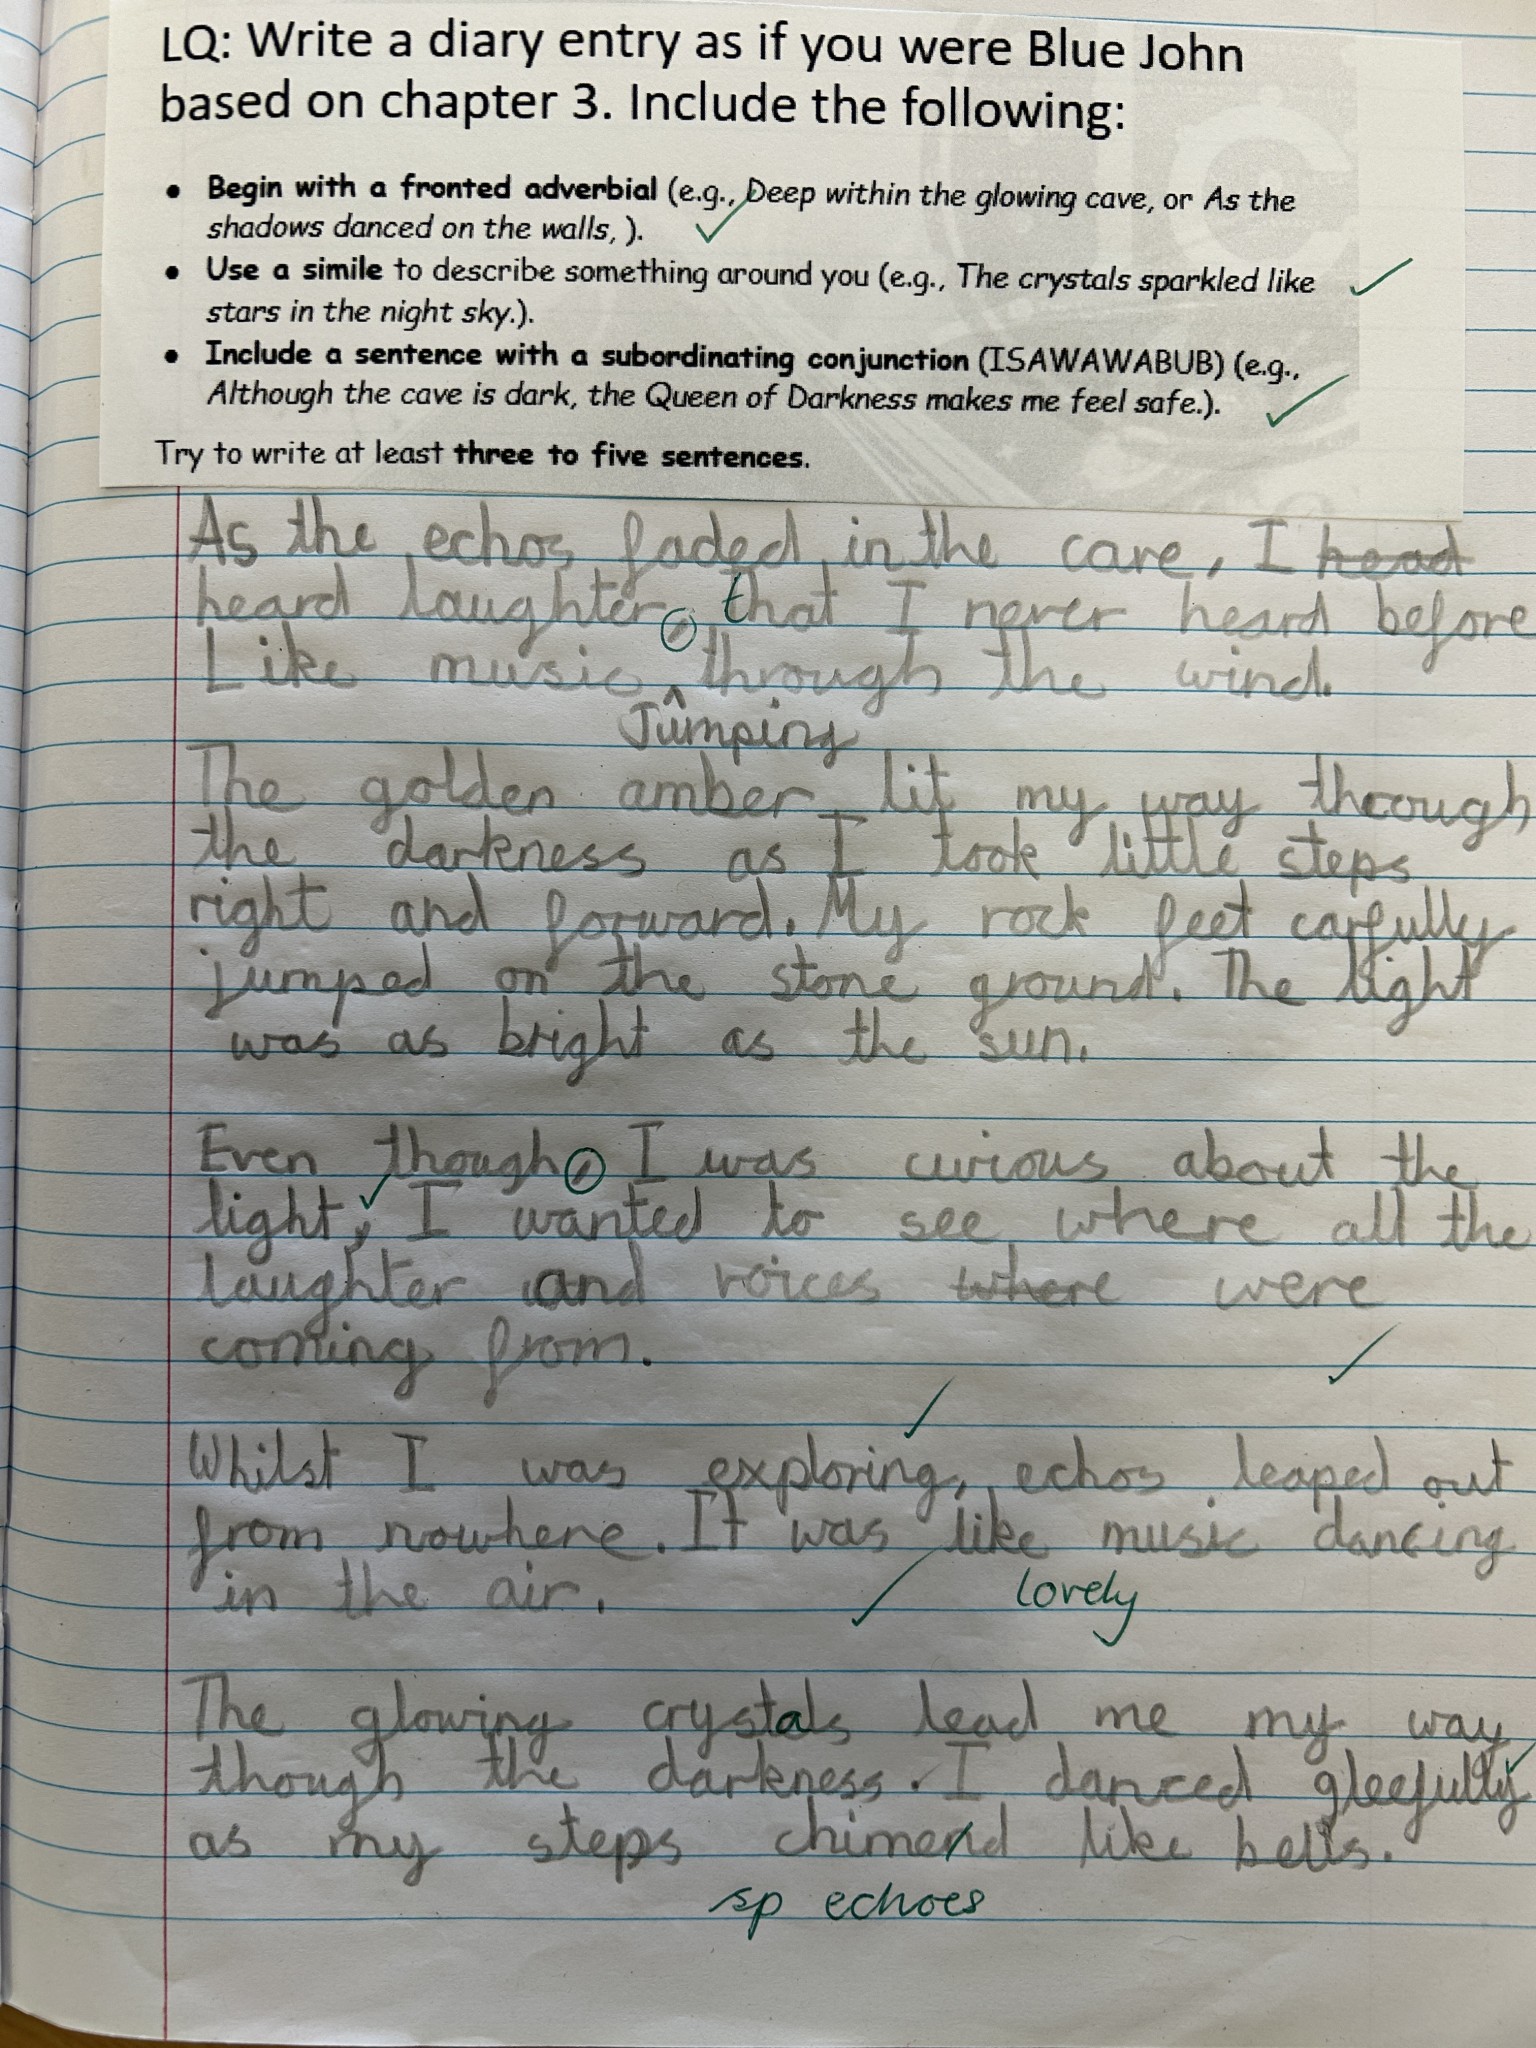 LQ: Write a diary entry as if you were Blue John
based on chapter 3. Include the following:
• Begin with a fronted adverbial (e.g., Deep within the glowing cave, or As the
shadows danced on the walls, ).
• Use a simile to describe something around you (e.g., The crystals sparkled like
stars in the night sky.).
• Include a sentence with a subordinating conjunction (ISAWAWABUB) (e.g.,
Although the cave is dark, the Queen of Darkness makes me feel safe.).
Try to write at least three to five sentences.
As the echos faded in the cave, I head
heard laughter, that I never heard before
Like music through the wind.
Jumping
The golden amber lit my way through
the darkness as I took little steps
right and forward. My rock feet carfully
jumped on the stone ground. The light
was as bright as the sun.
Even though, I was curious about the
light, I wanted to see where all the
laughter and voices where were
coming from.
Whilst I was exploring, echos leaped out
from nowhere. It was like music dancing
in the air.
lovely
The glowing crystals lead me my way
though the darkness. I danced gleefully
as my steps chimend like bells.
sp echoes